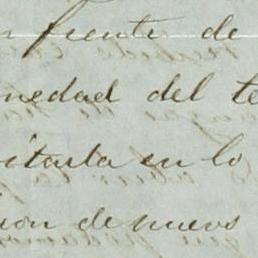 n frente de
nedad del te
citarla en lo
ion de nuevo